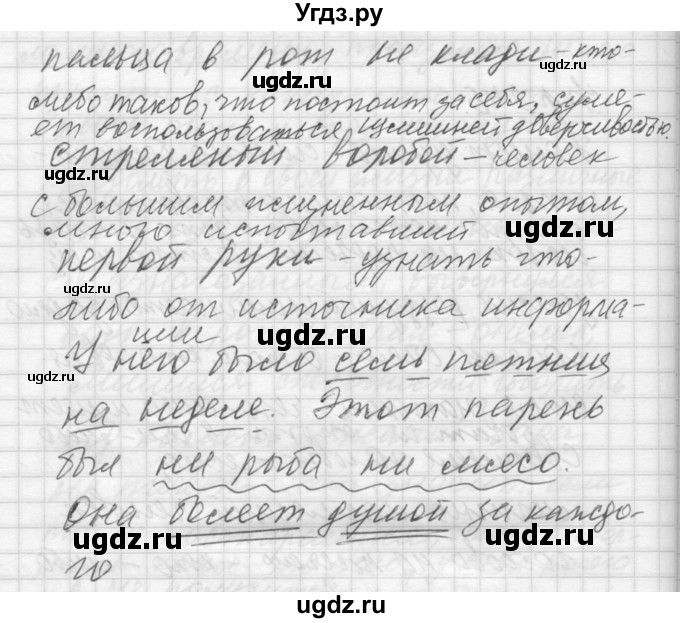 Угдз.ру
пальца в рот не клади - кто-
либо таков, что постоит за себя, суме-
ет воспользоваться излишней доверчивостью.
стреляный воробей - человек
с большим жизненным опытом,
много испытавший
первой руки - узнать что-
либо от источника информа-
ции
У него было семь пятниц
на неделе. Этот парень
был ни рыба ни мясо.
Она болеет душой за каждо-
го
ugdz.ru